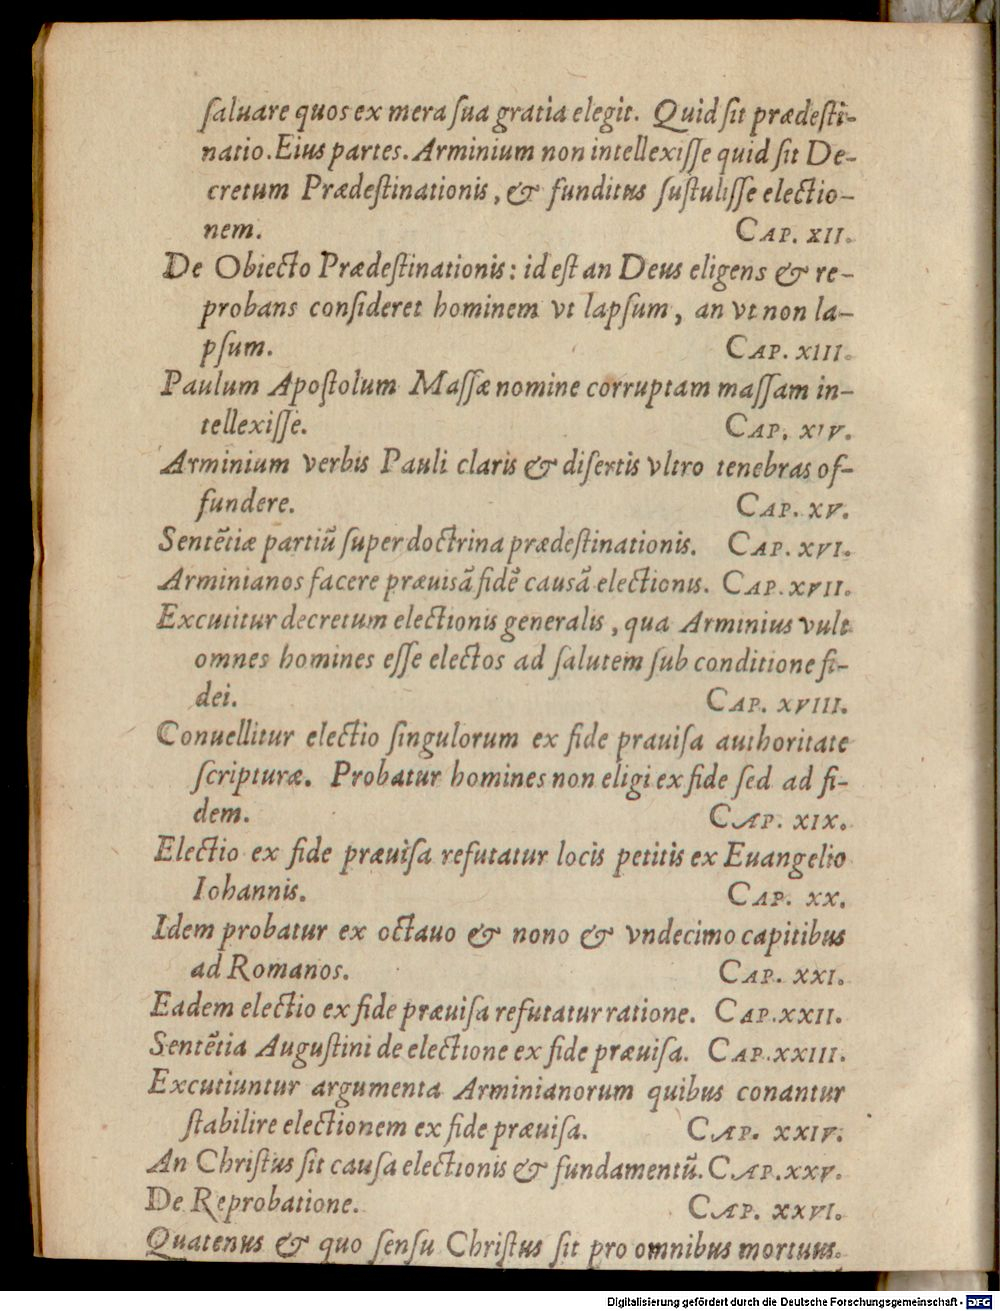 ſaluare quos ex mera ſua gratia elegit. Quid ſit prædeſti-
natio. Eius partes. Arminium non intellexiſſe quid ſit De-
cretum Prædeſtinationis, & funditus ſuſtuliſſe electio-
nem. CAP. XII.
De Obiecto Prædeſtinationis: id eſt an Deus eligens & re-
probans conſideret hominem vt lapſum, an vt non la-
pſum. CAP. XIII.
Paulum Apoſtolum Maſſæ nomine corruptam maſſam in-
tellexiſſe. CAP. XIV.
Arminium verbis Pauli claris & diſertis vltro tenebras of-
fundere. CAP. XV.
Sentẽtiæ partiũ ſuper doctrina prædeſtinationis. CAP. XVI.
Arminianos facere præuisã fidẽ causã electionis. CAP. XVII.
Excutitur decretum electionis generalis, qua Arminius vult
omnes homines eſſe electos ad ſalutem ſub conditione fi-
dei. CAP. XVIII.
Conuellitur electio ſingulorum ex fide prauiſa authoritate
ſcripturæ. Probatur homines non eligi ex fide ſed ad fi-
dem. CAP. XIX.
Electio ex fide præuiſa refutatur locis petitis ex Euangelio
Iohannis. CAP. XX.
Idem probatur ex octauo & nono & vndecimo capitibus
ad Romanos. CAP. XXI.
Eadem electio ex fide præuiſa refutatur ratione. CAP. XXII.
Sentẽtia Auguſtini de electione ex fide præuiſa. CAP. XXIII.
Excutiuntur argumenta Arminianorum quibus conantur
ſtabilire electionem ex fide præuiſa. CAP. XXIV.
An Chriſtus ſit cauſa electionis & fundamentũ. CAP. XXV.
De Reprobatione. CAP. XXVI.
Quatenus & quo ſenſu Chriſtus ſit pro omnibus mortuus.
Digitalisierung gefördert durch die Deutsche Forschungsgemeinschaft - DFG